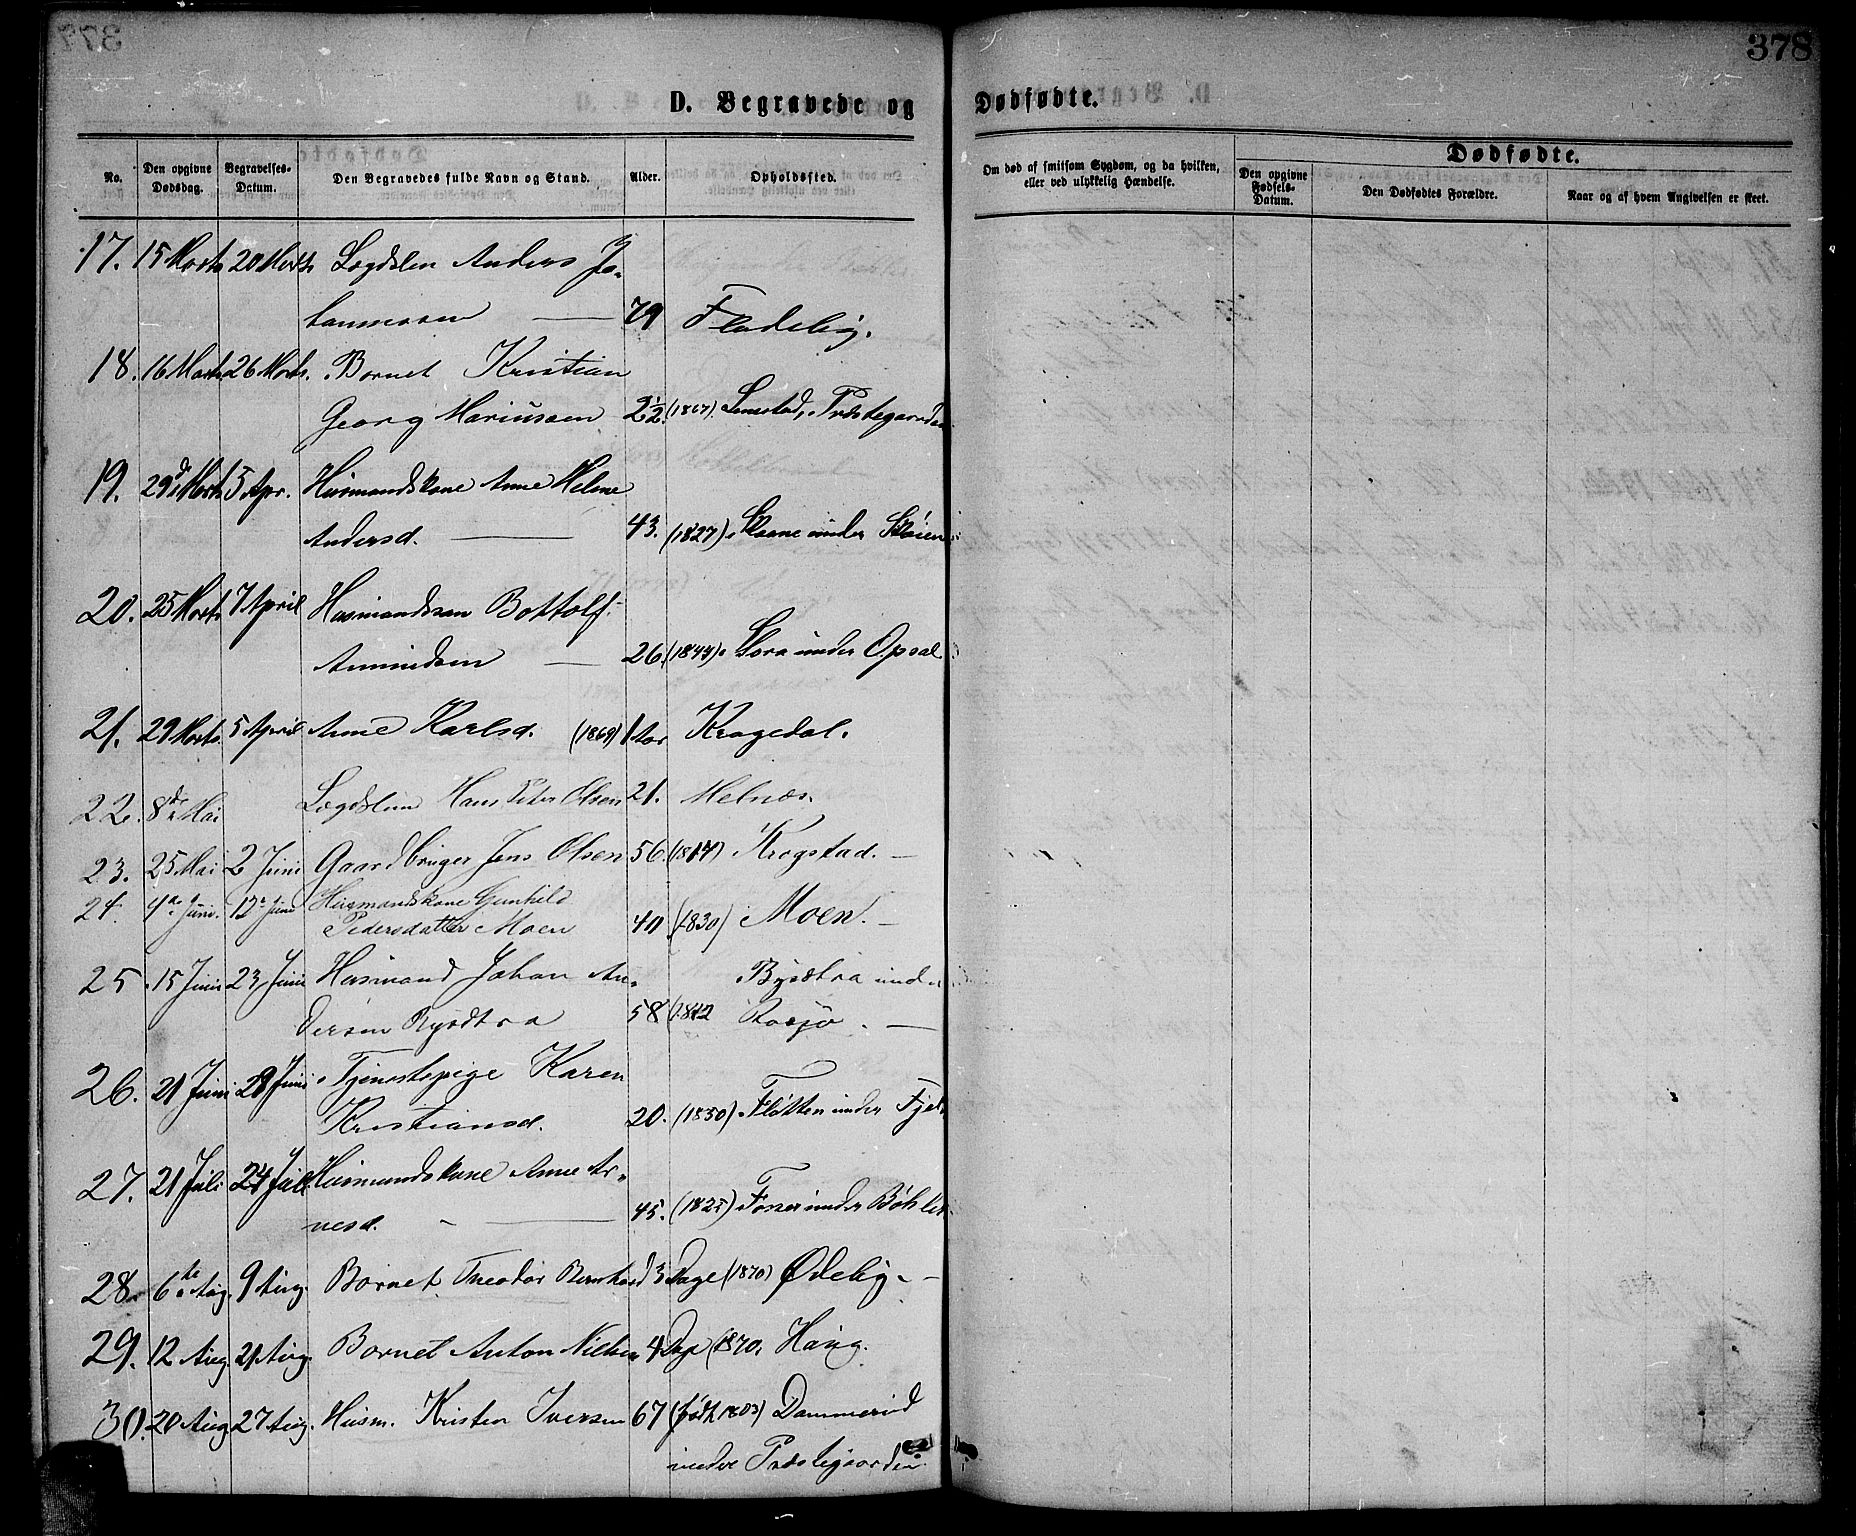 378
D. Begravede og Dødfødte.
No. Den opgivne Dødsdag. Begravelses-Datum. Den Begravedes fulde Navn og Stand. Alder. Opholdssted.
Om død af smitsom Sygdom, og da hvilken, eller ved ulykkelig Hændelse.
Dødfødte.
Den opgivne Fødsels-Datum. Den Dødfødtes Forældre. Naar og af hvem Angivelsen er skeet.
17. 15 Marts 20 Marts Lægdslem Anders Jo-
hannesen 79 Fladeby.
18. 16 Marts 26 Marts. Barnet Kristian
Georg Mariussen 2½ (1867). Præstegaarden
19. 29de Marts 5 Apr. Husmandskone Anne Helene
Andersd. 43. (1827). Skaane under Skøien
20. 25 Marts 7 April Husmandssøn Bottolf
Amundsen 26. (1844). Sora under Opsal
21. 29 Marts 5 April Anne Karlsd. (1869) 1 Aar Kragedal.
22. 8de Mai Lægdslem Hans Peter Olsen 21. Melnæs.
23. 25 Mai 2 Juni Gaardbruger Jens Olsen 56. (1814) Krogstad.
24. 4de Juni. 12te Juni Husmandskone Gunhild
Pedersdatter Moen 40 (1830) Moen.
25. 15 Juni 23 Juni Husmand Johan An-
dersen Bysætra 58 (1812 Bysætra under
Rosjø.
26. 21 Juni 28 Juni Tjenestepige Karen
Kristiansd. 20. (1850). Fløtten under Fjel
27. 21 Juli 24 Juli Husmandskone Anne Ar-
nesd. 45. (1825) Fosser under Bøhler
28. 6te Aug. 9 Aug. Barnet Theodor Bernhard 3 Dage (1870) Ødeby.
29. 12 Aug. 21 Aug. Barnet Anton Nielsen 4 Dage (1870. Haug.
30. 20 Aug. 27 Aug. Husm. Kristen Iversen 67 (født 1803) Dammerud
under Præstegaarden.